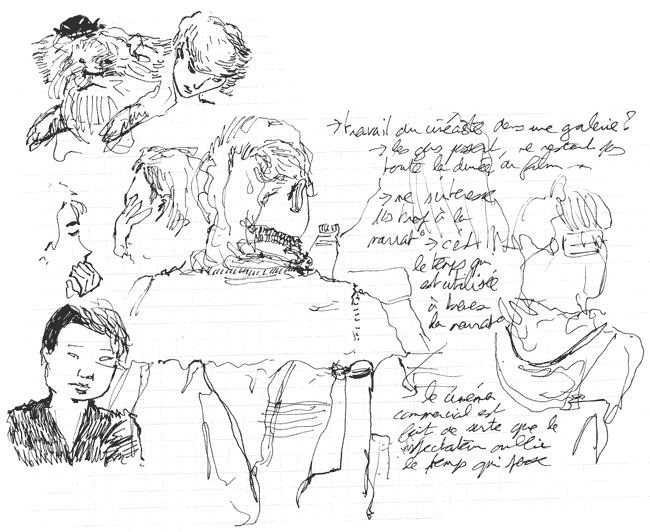 → travail du cinéaste dans une galerie ?
→ les gens ne restent pas
toute la durée du film
→ ne s'intéresse
pas trop à la
narrat° → c'est
le temps qui
est utilisée
à travers
la narrat°
le cinéma
commercial est
fait de sorte que le
spectateur oublie
le temps qui passe